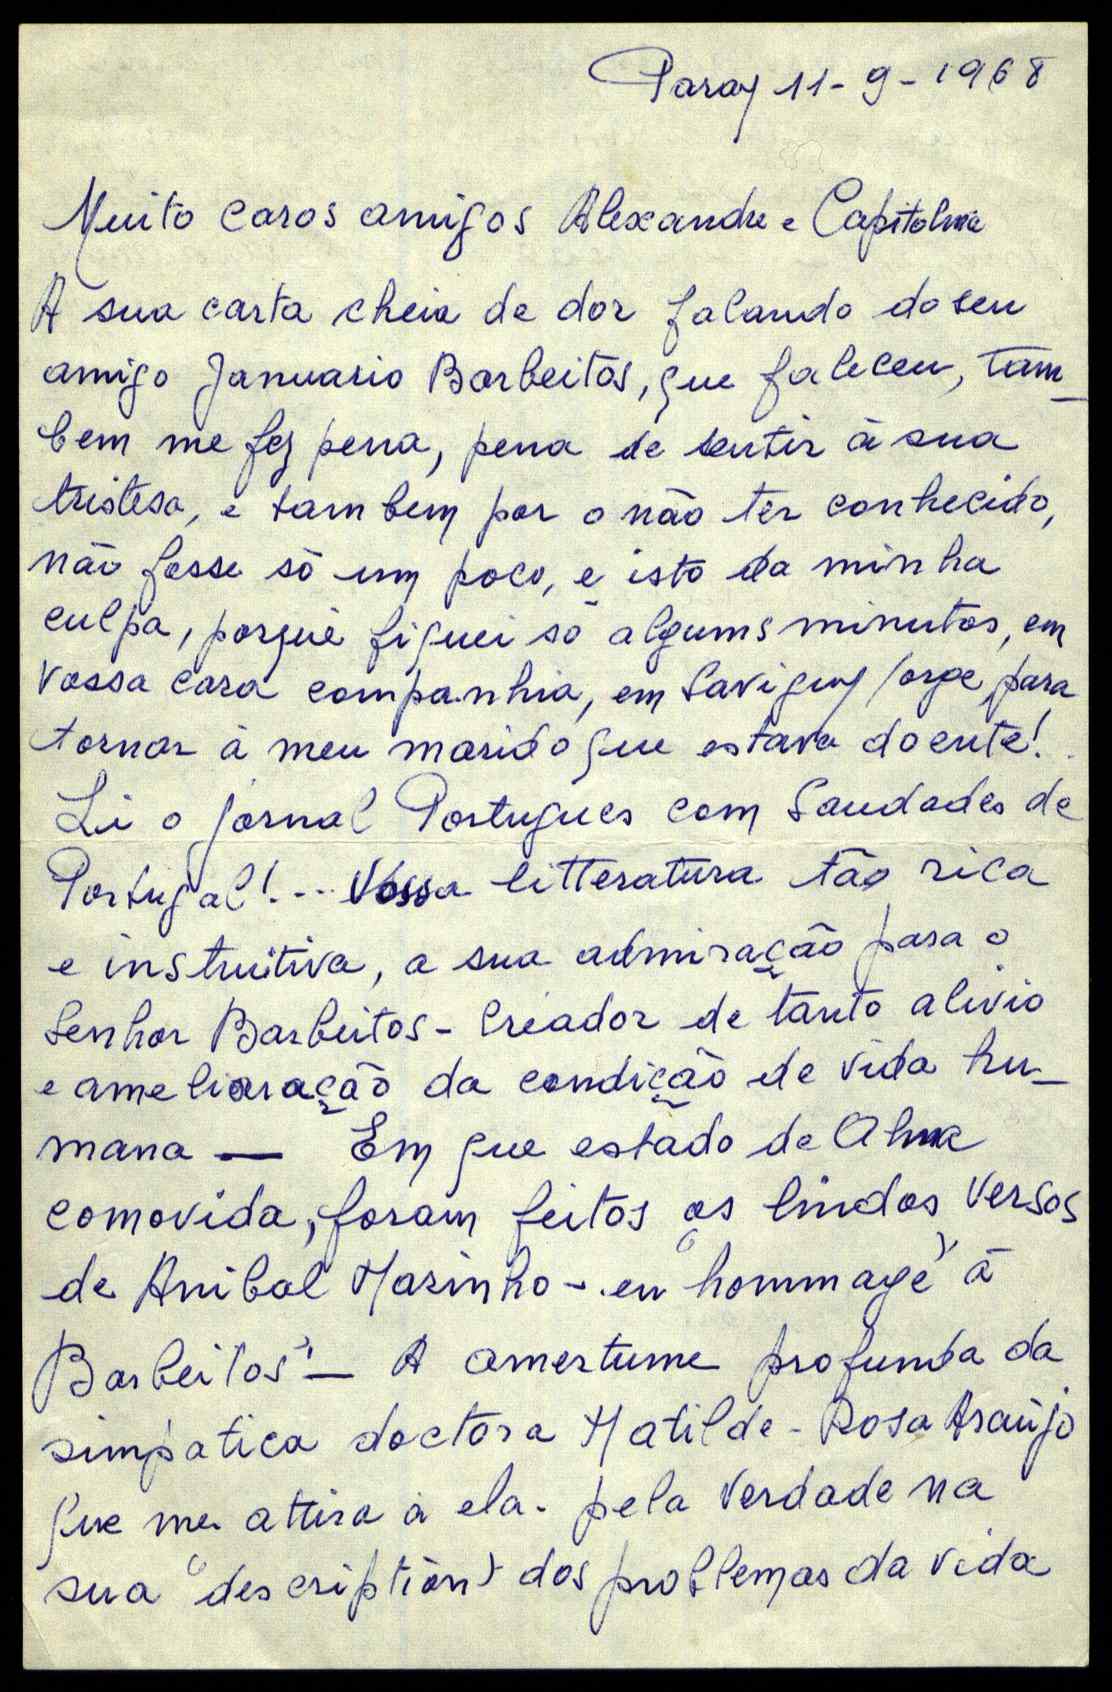 Paray 11-9-1968
Muito caros amigos Alexandre e Capitolina
A sua carta cheia de dor falando do seu
amigo Januario Barbeitos, que faleceu, tam_
bem me fez pena, pena de sentir à sua
tristesa, e tambem por o não ter conhecido,
não fosse só um poco, e isto da minha
culpa, porque fiquei só algums minutos, em
vossa cara companhia, em Savigny/orge, para
tornar à meu marido que estava doente!
Li o jornal Portugues com Saudades de
Portugal!... Vossa litteratura tão rica
e instruitiva, a sua admiração para o
Senhor Barbeitos - Criador de tanto alivio
e amelioração da condição de vida hu_
mana — Em que estado de Alma
comovida, foram feitos os lindos versos
de Anibal Marinho - "en hommage" à
Barbeitos" — A amertume profunda da
simpatica doctora Matilde - Rosa Araújo
que me attira à ela. pela verdade na
sua "description" dos problemas da vida